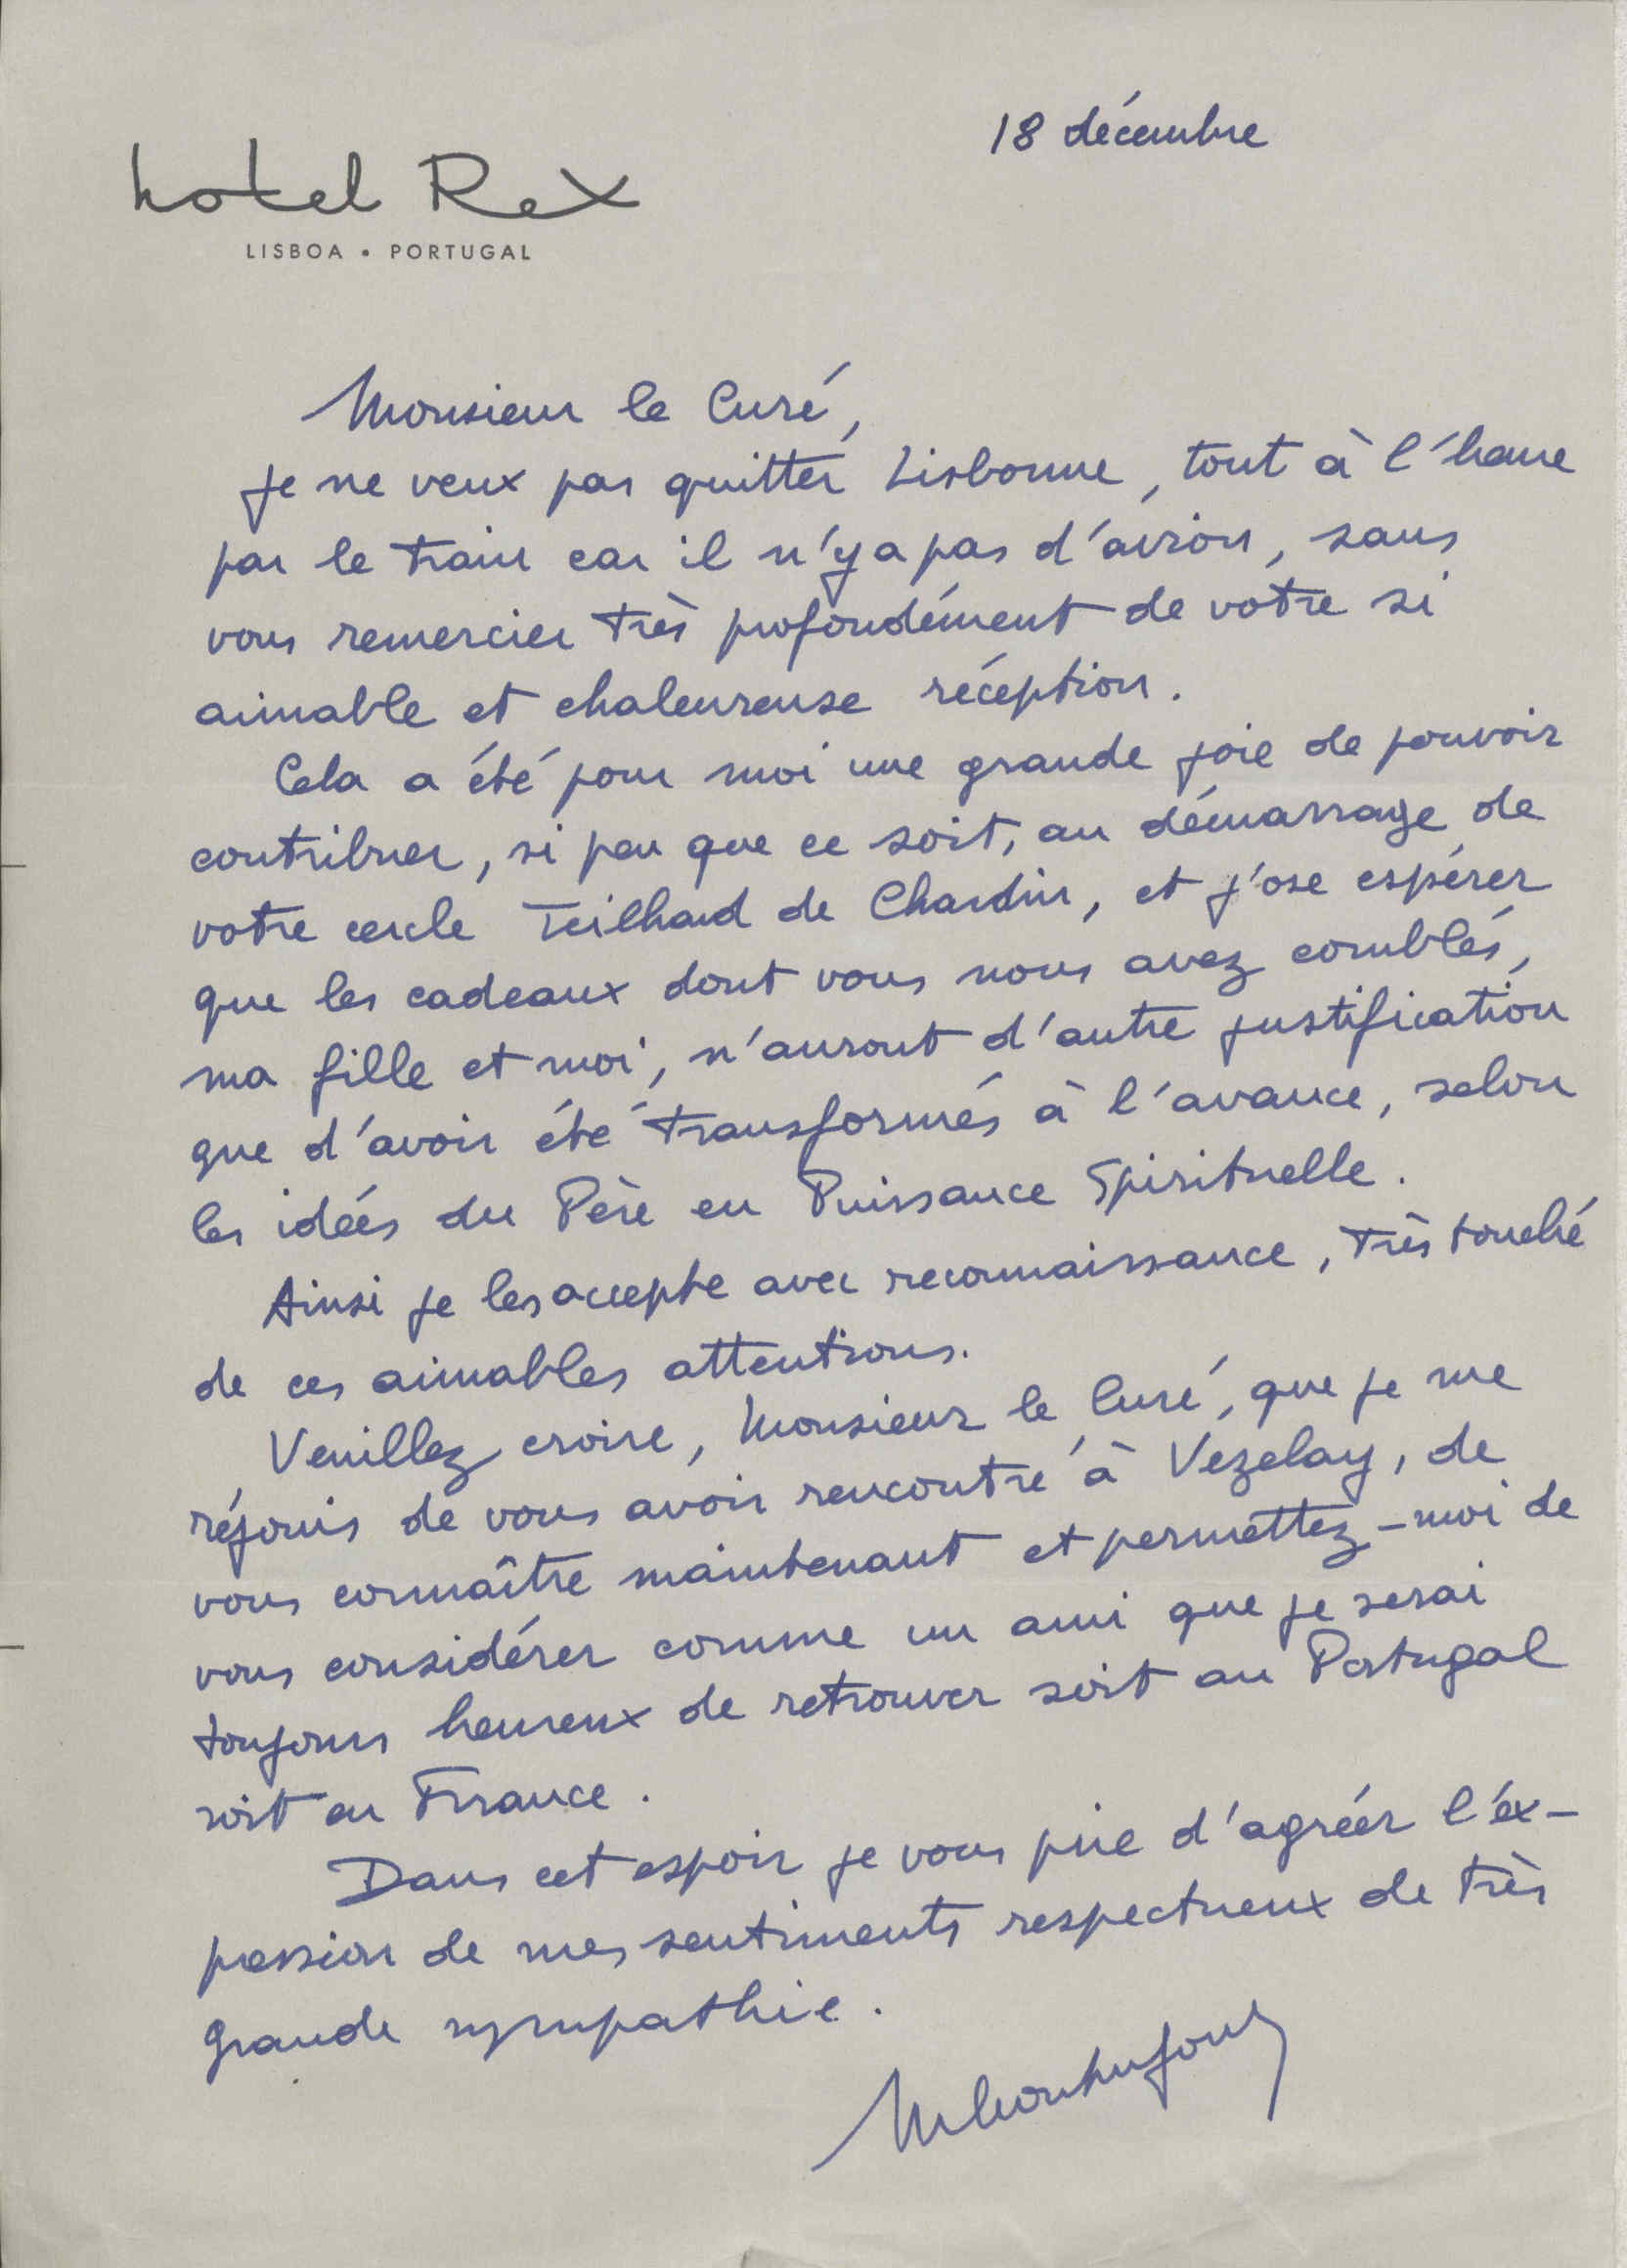 18 décembre
hotel Rex
LISBOA • PORTUGAL
Monsieur le Curé,
je ne veux pas quitter Lisbonne, tout à l'heure
par le train car il n'y a pas d'avion, sans
vous remercier très profondément de votre si
aimable et chaleureuse réception.
Cela a été pour moi une grande joie de pouvoir
contribuer, si peu que ce soit, au démarrage de
votre cercle Teilhard de Chardin, et j'ose espérer
que les cadeaux dont vous nous avez comblés,
ma fille et moi, n'auront d'autre justification
que d'avoir été transformés à l'avance, selon
les idées du Père en Puissance Spirituelle.
Ainsi je les accepte avec reconnaissance, très touché
de ces aimables attentions.
Veuillez croire, Monsieur le Curé, que je me
réjouis de vous avoir rencontré à Vezelay, de
vous connaître maintenant et permettez-moi de
vous considérer comme un ami que je serai
toujours heureux de retrouver soit au Portugal
soit en France.
Dans cet espoir je vous prie d'agréer l'ex-
pression de mes sentiments respectueux de très
grande sympathie.